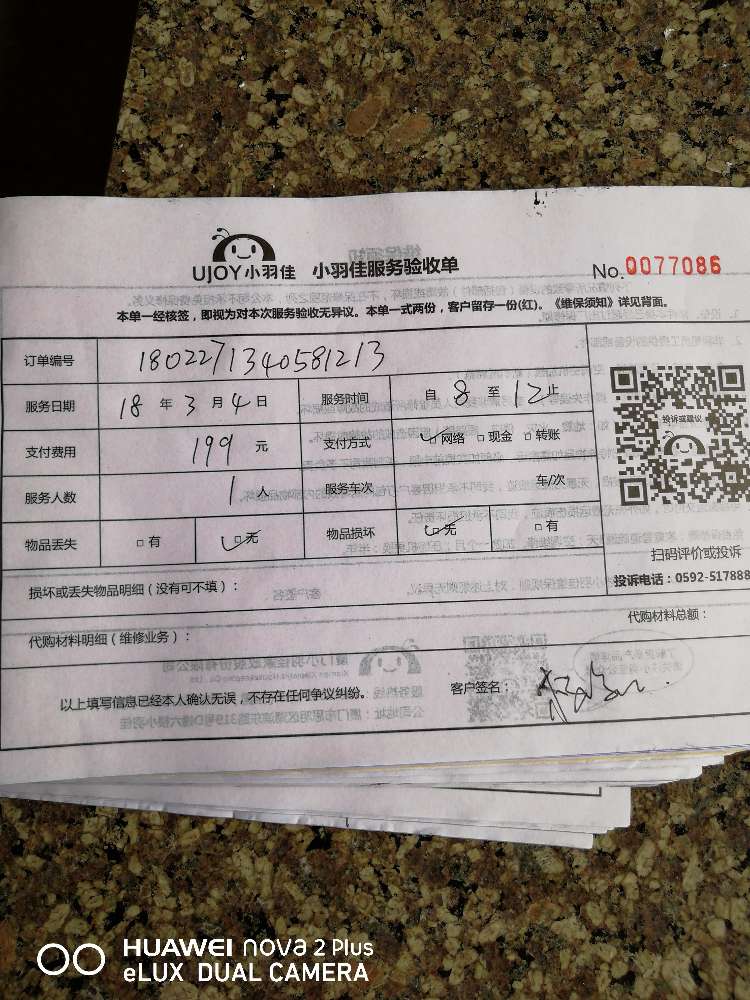 UJOY小羽佳 小羽佳服务验收单
No.0077086
本单一经核签，即视为对本次服务验收无异议。本单一式两份，客户留存一份(红)。《维保须知》详见背面。
订单编号 1802271340581213
服务日期 18 年 3 月 4 日 服务时间 自 8 至 12 止
支付费用 199 元 支付方式 ☑网络 □现金 □转账
服务人数 1 人 服务车次 车/次
物品丢失 □有 ☑无 物品损坏 ☑无 □有
投诉或建议
扫码评价或投诉
投诉电话：0592-517888
损坏或丢失物品明细（没有可不填）：
代购材料明细（维修业务）：
代购材料总额：
以上填写信息已经本人确认无误，不存在任何争议纠纷。
客户签名：
HUAWEI nova 2 Plus
eLUX DUAL CAMERA